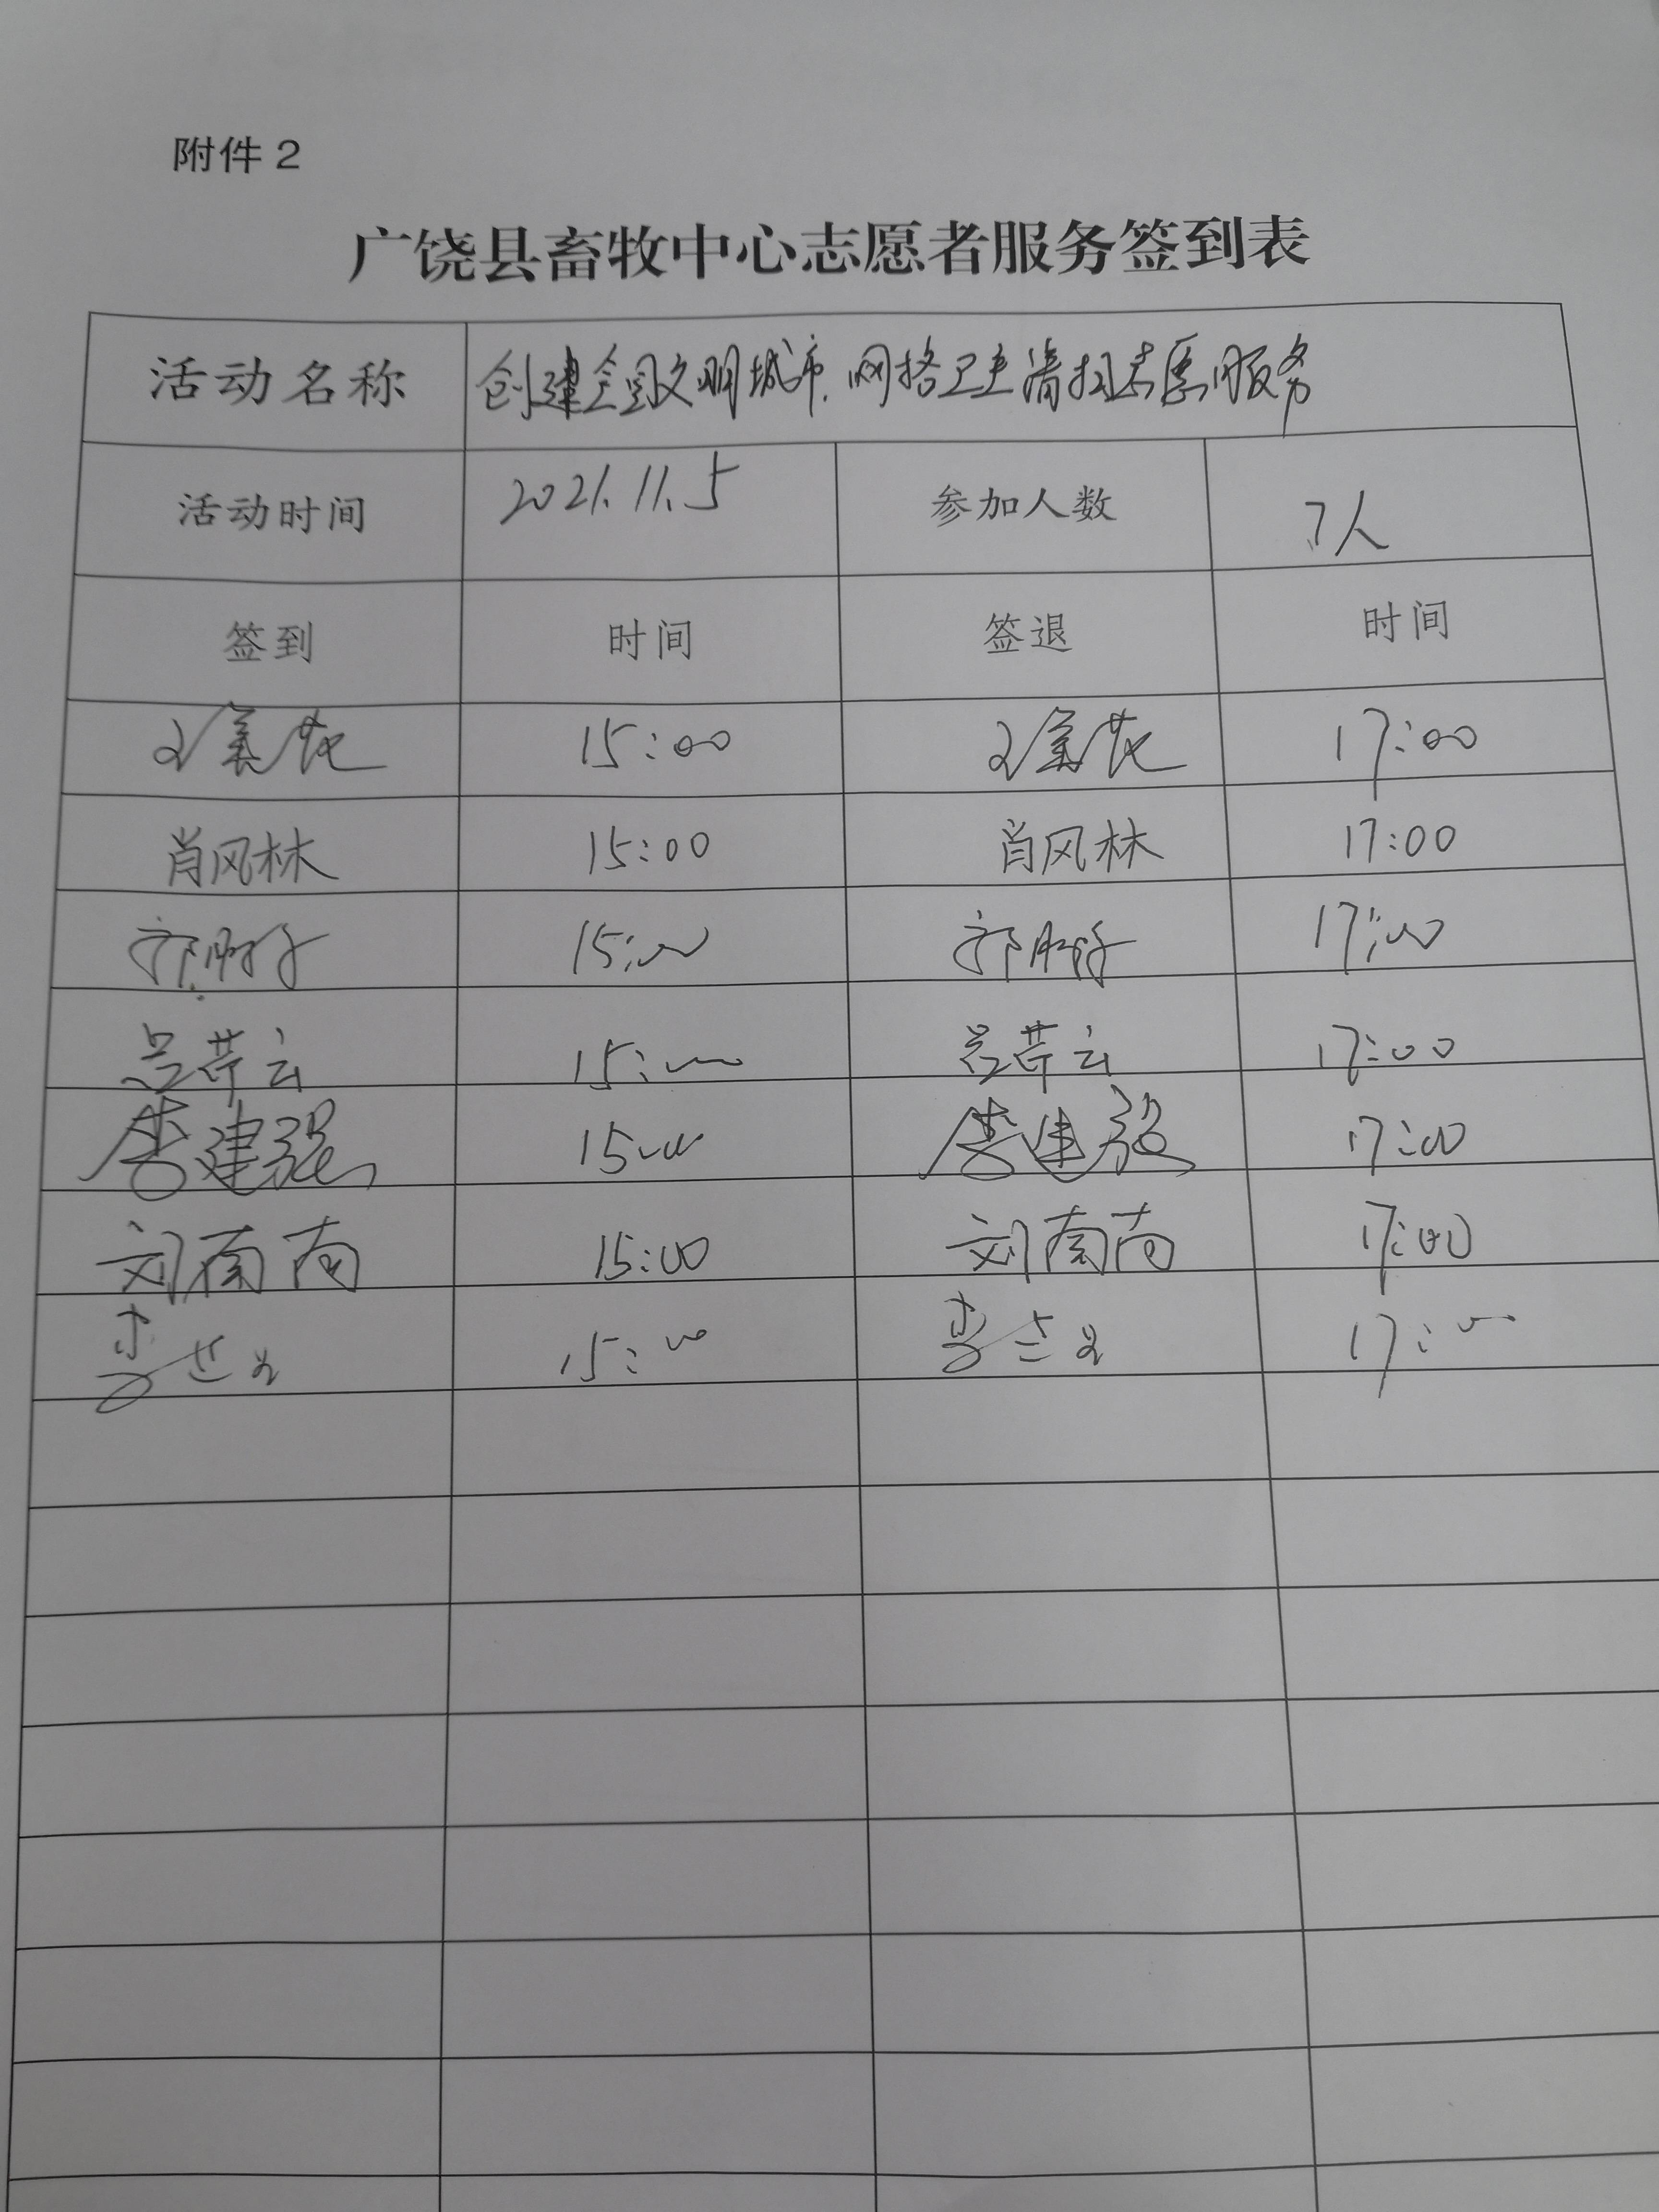 附件2
广饶县畜牧中心志愿者服务签到表
活动名称 创建全国文明城市.网格卫生清扫志愿服务
活动时间 2021.11.5 参加人数 7人
签到 时间 签退 时间
15:00 17:00
肖风林 15:00 肖风林 17:00
15:00 17:00
吕芹云 15:00 吕芹云 17:00
李建强 15:00 李建强 17:00
刘南南 15:00 刘南南 17:00
李 15:00 李 17:00